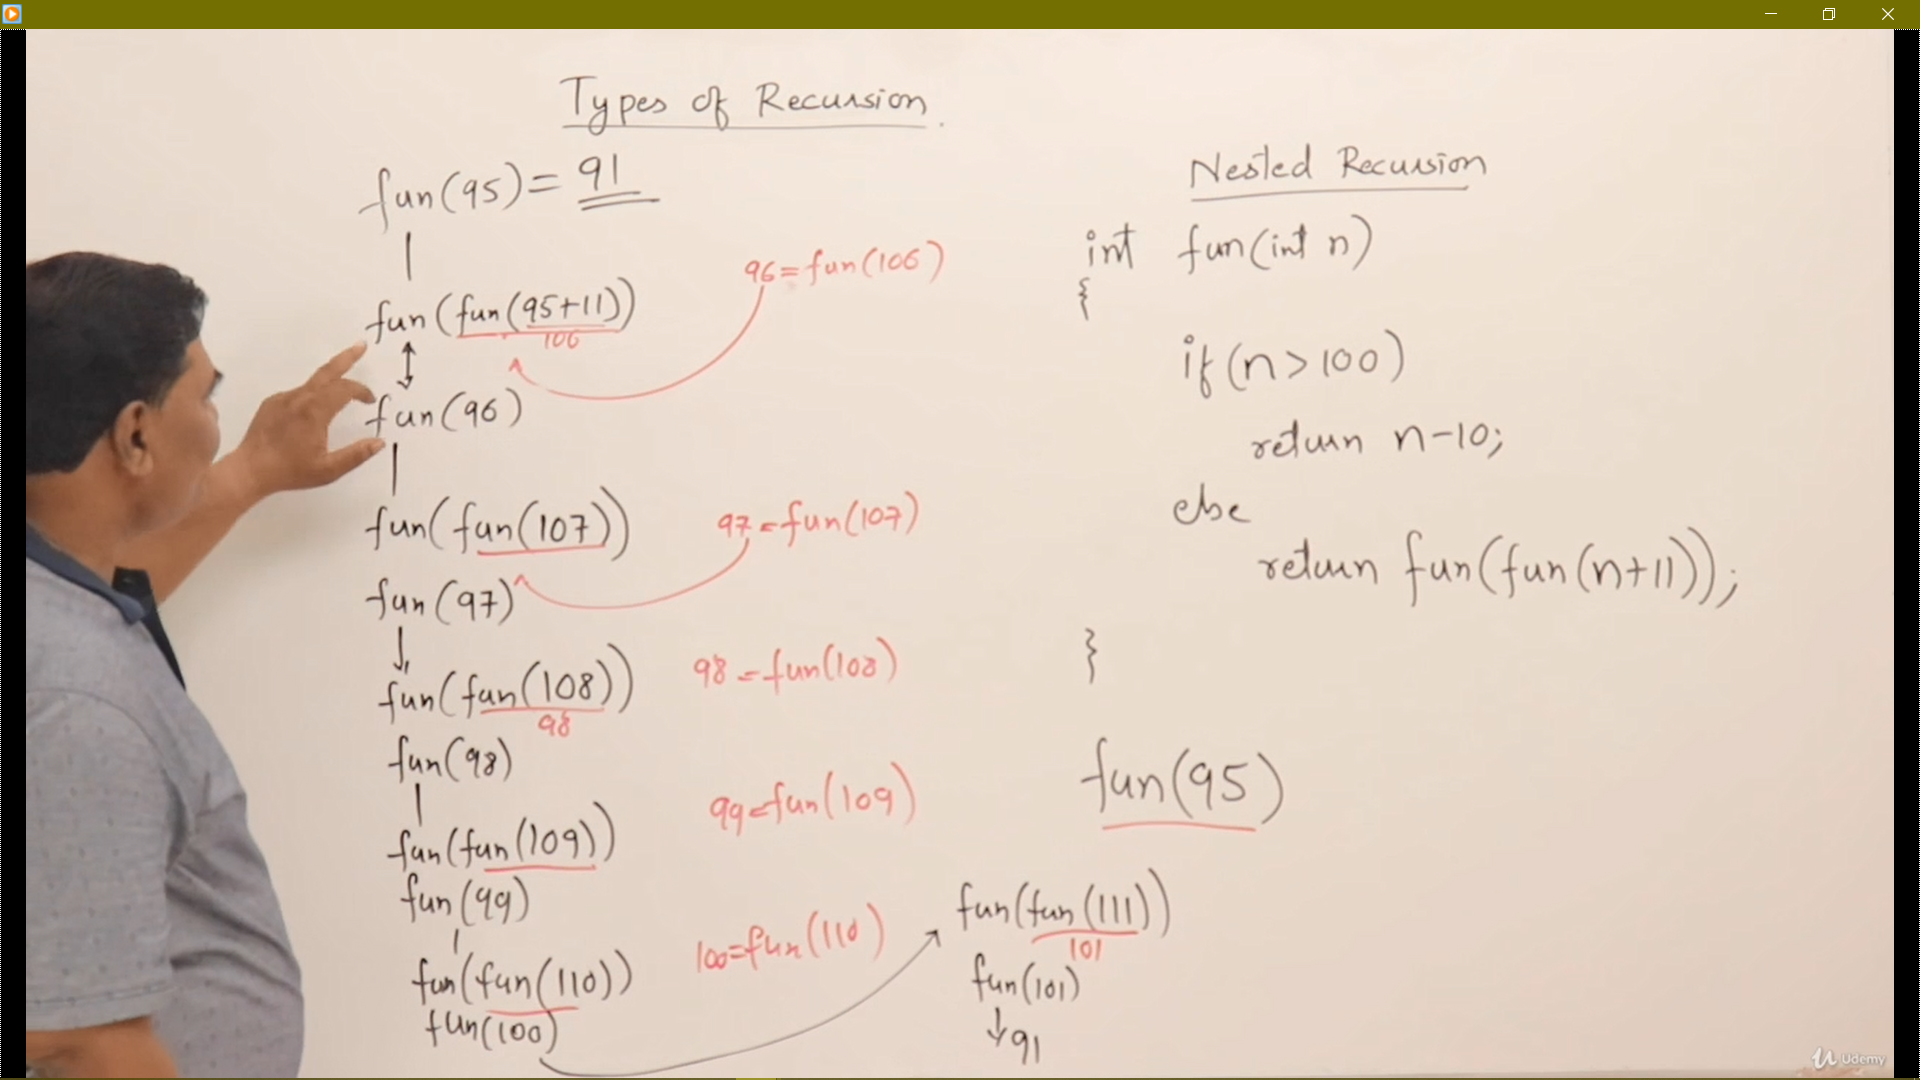 Types of Recursion.
fun(95) = 91
fun(fun(95+11))
106
96 = fun(106)
fun(96)
fun(fun(107))
97 = fun(107)
fun(97)
fun(fun(108))
98
98 = fun(108)
fun(98)
fun(fun(109))
99 = fun(109)
fun(99)
fun(fun(110))
100 = fun(110)
fun(100)
fun(fun(111))
101
fun(101)
91
Nested Recursion
int fun(int n)
{
if(n>100)
return n-10;
else
return fun(fun(n+11));
}
fun(95)
Udemy